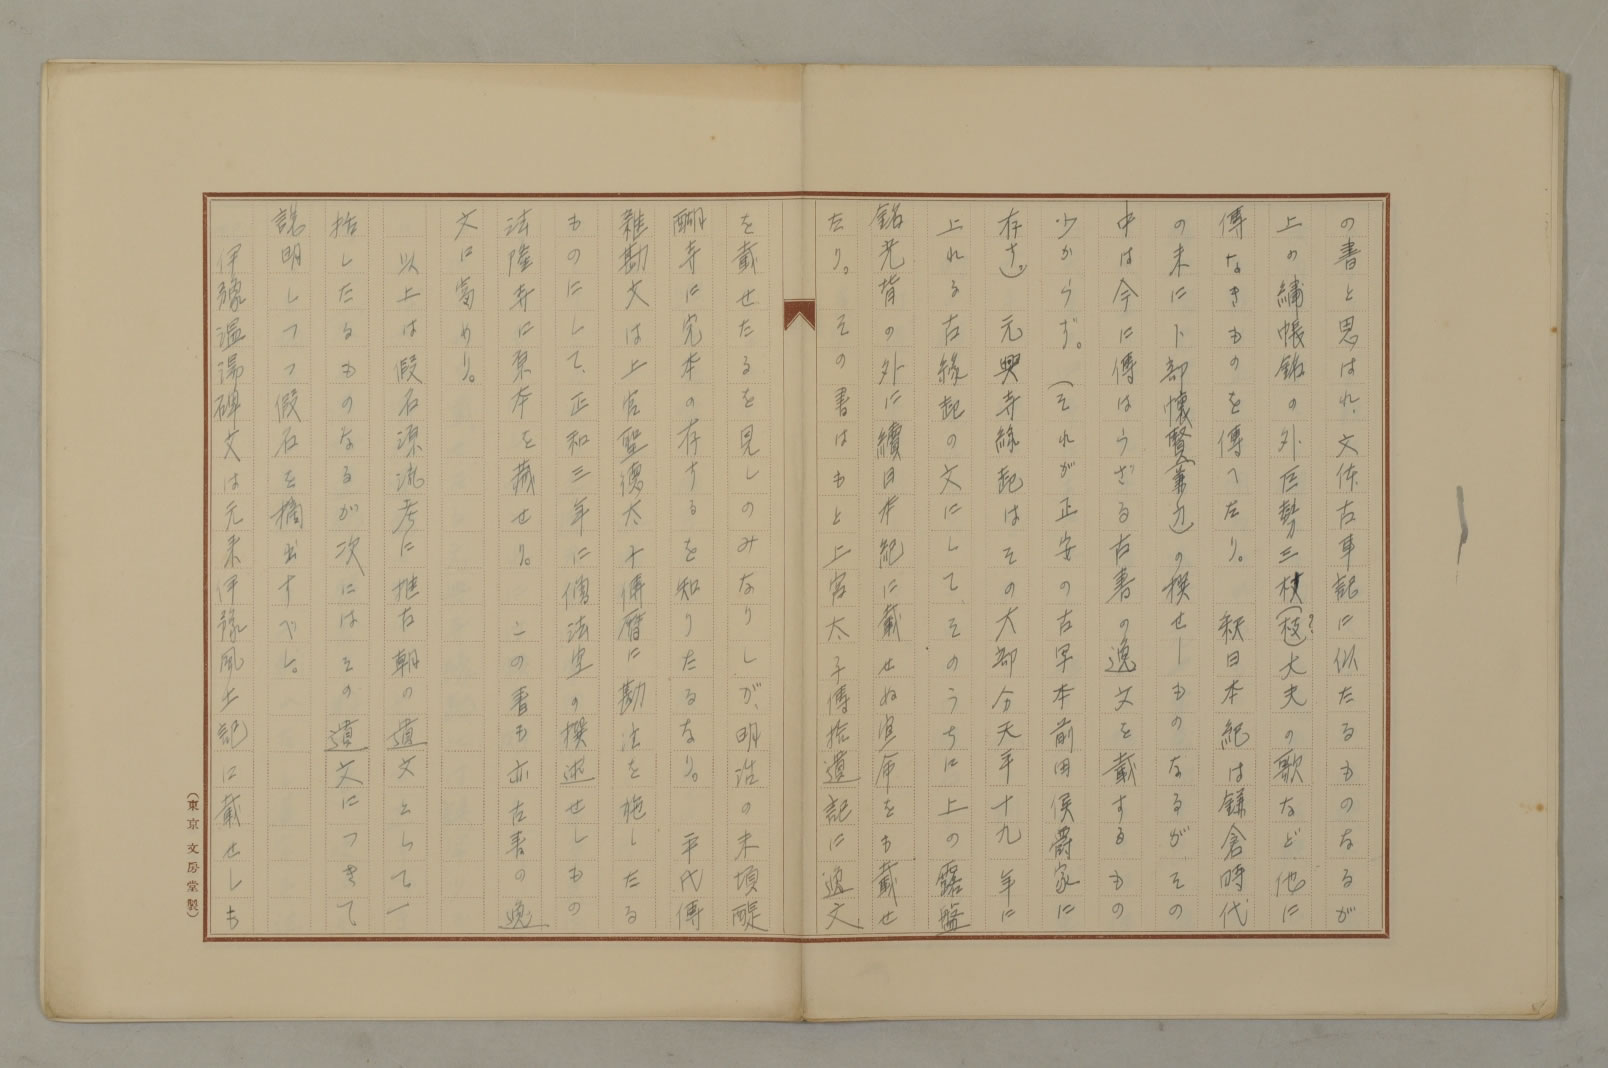 の書と思はれ、文体古事記に似たるものなるが
上の繍帳銘の外巨勢三杖(枝?)大夫の歌など他に
傳なきものを傳へたり。 釈日本紀は鎌倉時代
の末に卜部懐賢(兼方)の撰せしものなるがその
中は今に傳はらざる古書の逸文を載するもの
少からず。(それが正安の古写本前田侯爵家に
存す。) 元興寺縁起はその大部分天平十九年に
上れる古縁起の文にしてそのうちに上の露盤
銘光背の外に續日本紀に載せぬ宣命をも載せ
たり。その書はもと上宮太子傳拾遺記に逸文
を載せたるを見しのみなりしが、明治の末頃醍
醐寺に完本の存するを知りたるなり。 平氏傳
雜勘文は上宮聖徳太子傳暦に勘注を施したる
ものにして、正和三年に僧法空の撰述せしもの
法隆寺に原本を藏せり。 この書も亦古書の逸
文に富めり。
以上は假名源流考に推古朝の遺文として一
括したるものなるが次にはその遺文につきて
説明しつつ假名を摘出すべし。
伊豫温湯碑文は元来伊豫風土記に載せしも
(東京文房堂製)